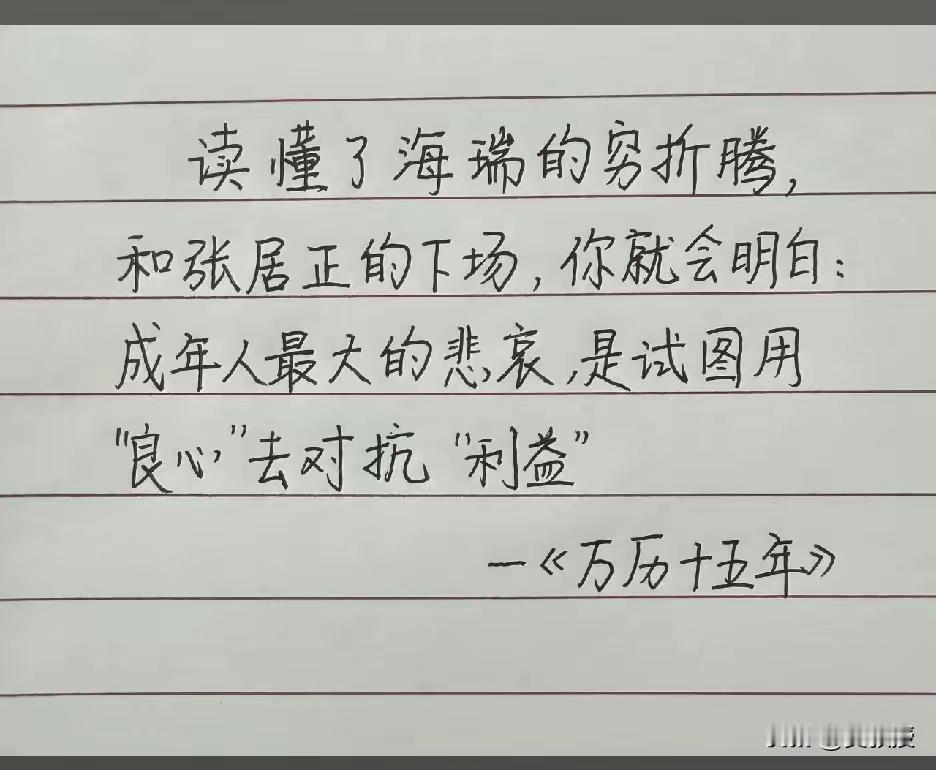 读懂了海瑞的穷折腾,
和张居正的下场,你就会明白:
成年人最大的悲哀,是试图用
“良心”去对抗“利益”
—《万历十五年》